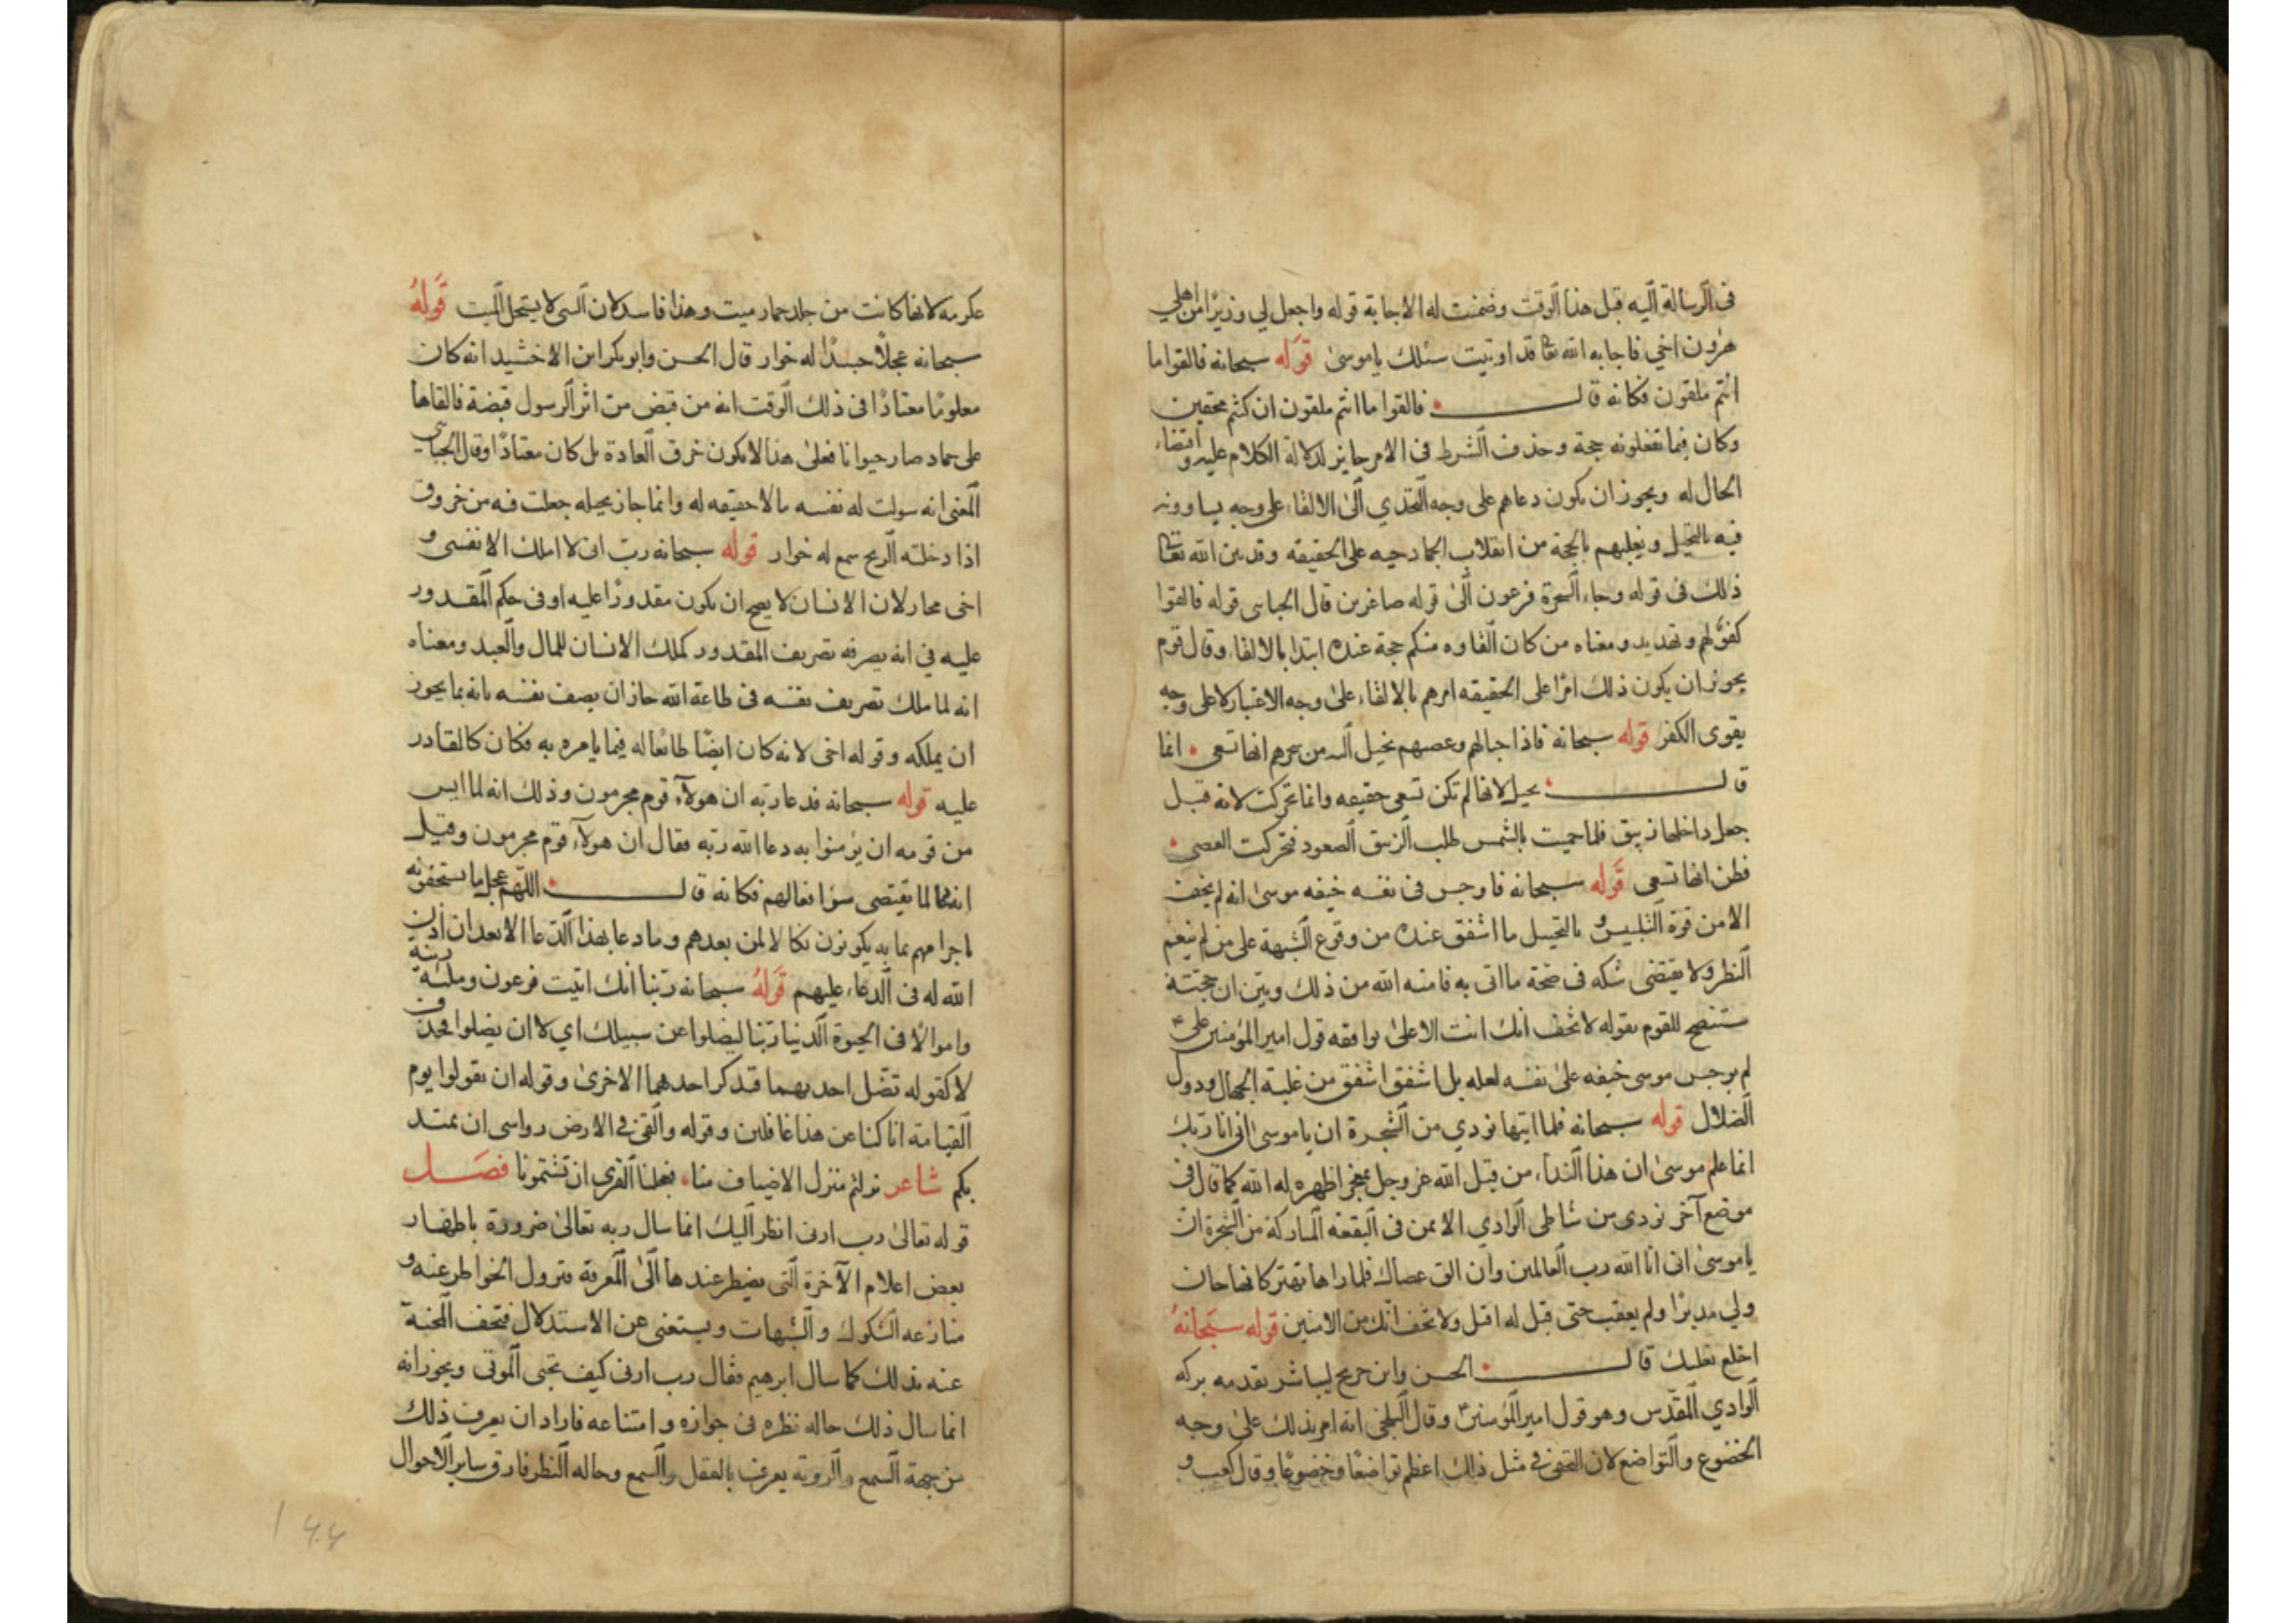 في الرسالة اليه قبل هذا الوقت وضمنت له الاجابة قوله واجعل لي وزيرًا من اهلي
هرون اخي فاجابه الله تعا قد اوتيت سئلك ياموسى قوله سبحانه فالقوا ما
انتم ملقون فكانه قال فالقوا ما انتم ملقون ان كنتم محقين
وكان فيما تفعلونه حجة وحذف الشرط في الامر جايز لدلالة الكلام عليه واقتضاء
الحال له ويجوز ان يكون دعاهم على وجه التحدي الى الالقاء على وجه يساوونه
فيه بالتخيل ويغلبهم بالحجة من انقلاب الجماد حيه على الحقيقه وقد بين الله تعا
ذلك في قوله وجاء السحرة فرعون الى قوله صاغرين قال الجباى قوله فالقوا
كفوٌ لهم وتهديد ومعناه من كان القاوه منكم حجة عنده ابتدا بالالقاء وقال قوم
يجوز ان يكون ذلك امرًا على الحقيقه امرهم بالالقاء على وجه الاعتبار لا على وجه
يقوى الكفر قوله سبحانه فاذا حبالهم وعصيهم يخيل اليه من سحرهم انها تسعى انما
قال يخيل لانها لم تكن تسعى حقيقه وانما تحركت لانه قيل
جعل داخلها زيبق فلما حميت بالشمس طلب الزيبق الصعود فتحركت العصى
فظن انها تسعى قوله سبحانه فاوجس في نفسه خيفه موسى انه لم يخف
الا من قوة التلبيس بالتخيل ما اشفق عنده من وقوع الشبهة على من لم ينعم
النظر ولا يقتضى شكه في صحة ما اتى به فامنه الله من ذلك وبين ان حجته
ستتضح للقوم بقوله لا تخف انك انت الاعلى يوافقه قول امير المؤمنين على
لم يوجس موسى خيفه على نفسه لعله بل اشفق اشفق من غلبة الجهال ودول
الضلال قوله سبحانه فلما اتيها نودي من الشجرة ان ياموسى انى انا ربك
انما علم موسى ان هذا النداء من قبل الله عز وجل بمعجز اظهره له الله كما قال في
موضع آخر نودى من شاطى الوادي الايمن في البقعة المباركة من الشجرة ان
ياموسى انى انا الله رب العالمين وان الق عصاك فلما راها تهتز كانها جان
ولي مدبرًا ولم يعقب حتى قيل له اقبل ولا تخف انك من الامنين قوله سبحانه
اخلع نعليك قال الحسن وابن جريج ليباشر بقدمه بركه
الوادي المقدس وهو قول امير المؤمنين وقال البلخى انه امر بذلك على وجه
الخضوع والتواضع لان التحفى في مثل ذلك اعظم تواضعًا وخضوعًا وقال كعب و
عكرمه لانها كانت من جلد حمار ميت وهذا فاسد لان النبى لا يستحل الميت قوله
سبحانه عجلًا جسدًا له خوار قال الحسن وابو بكر ابن الاخشيد انه كان
معلومًا معتادًا في ذلك الوقت انه من قبض من اثر الرسول قبضة فالقاها
على جماد صار حيوانا فعلى هذا لا يكون خرق العادة بل كان معتادًا وقال الجباى
المغنى انه سولت له نفسه ما لا حقيقه له وانما جاز بحيله جعلت فيه من خروق
اذا دخلته الريح سمع له خوار قوله سبحانه رب انى لا املك الا نفسى و
اخى مجاز لان الانسان لا يصح ان يكون مقدورًا عليه او في حكم المقدور
عليه في انه يصرفه تصريف المقدور كملك الانسان للمال والعبد ومعناه
انه لما ملك تصريف نفسه في طاعة الله جاز ان يصف نفسه بانه بما يجوز
ان يملكه وقوله اخى لانه كان ايضًا طائعًا له فيما يامره به فكان كالقادر
عليه قوله سبحانه فدعا ربه ان هولآء قوم مجرمون وذلك انه لما ايس
من قومه ان يؤمنوا به دعا الله ربه فقال ان هولآء قوم مجرمون وقيل
انه دعا لما يقتضى سوء افعالهم فكانه قال اللهم عجل ما يستحقونه
باجرامهم بما به يكونون نكالا لمن بعدهم وما دعا بهذا الدعا الا بعد ان اذن
الله له في الدعاء عليهم قوله سبحانه ربنا انك اتيت فرعون وملئه زينة
واموالًا في الحيوة الدنيا ربنا ليضلوا عن سبيلك اي لا ان يضلوا فحذف
لا كقوله تضل احديهما فتذكر احدهما الاخرى وقوله ان يقولوا يوم
القيامة انا كنا عن هذا غافلين وقوله والقى في الارض رواسى ان تميد
بكم شاعر نزلتم منزل الاضياف منا، فجعلنا القرى ان تشتمونا فصل
قوله تعالى رب ارنى انظر اليك انما سال ربه تعالى ضرورة باظهار
بعض اعلام الآخرة التى يضطر عندها الى المعرفة فتزول الخواطر عنه و
منازعه الشكوك والشبهات ويستغنى عن الاستدلال فتخف المحنة
عنه بذلك كما سال ابرهيم فقال رب ارنى كيف تحيى الموتى ويجوز انه
انما سال ذلك حاله نظره في جوازه وامتناعه فاراد ان يعرف ذلك
من جهة السمع والروية يعرف بالعقل والسمع وحاله النظر فارق ساير الاحوال